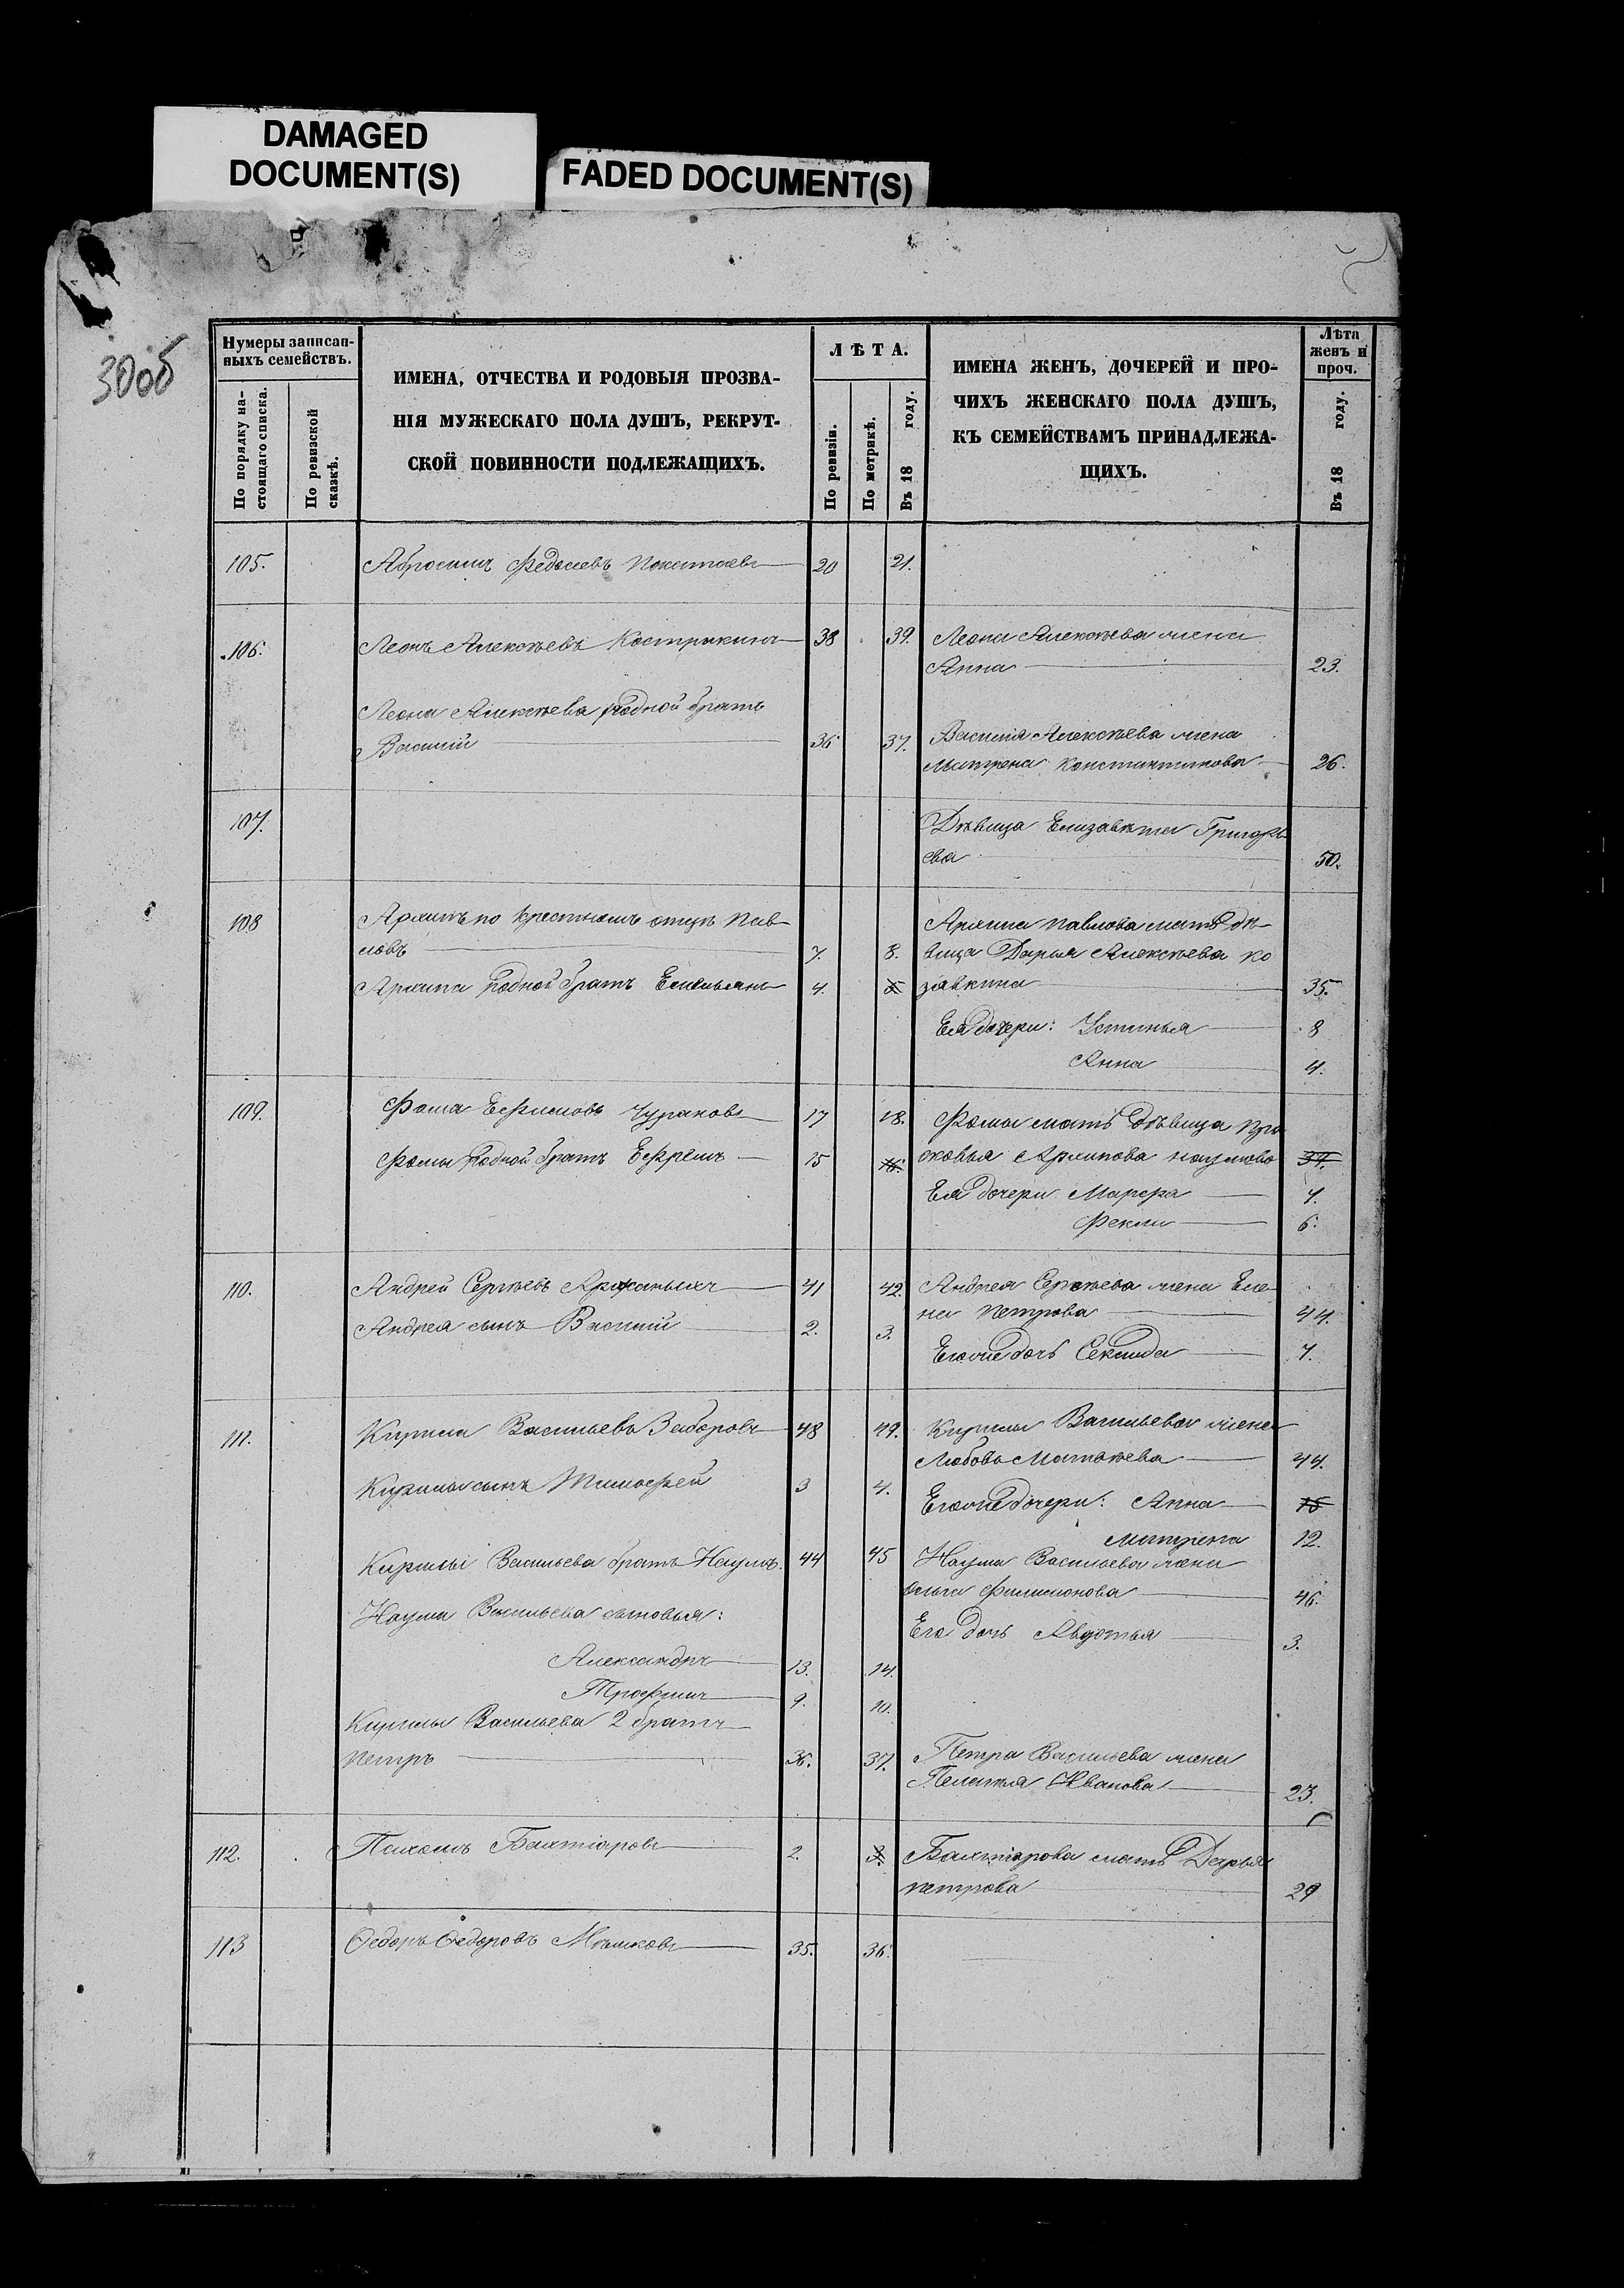 DAMAGED
DOCUMENT(S)
FADED DOCUMENT(S)
30об
Нумеры записан-
ныхъ семействъ.
По порядку на-
стоящаго списка.
По ревизской
сказкѣ.
ИМЕНА, ОТЧЕСТВА И РОДОВЫЯ ПРОЗВА-
НІЯ МУЖЕСКАГО ПОЛА ДУШЪ, РЕКРУТ-
СКОЙ ПОВИННОСТИ ПОДЛЕЖАЩИХЪ.
ЛѢТА.
По ревизіи.
По метрикѣ.
Въ 18 году.
ИМЕНА ЖЕНЪ, ДОЧЕРЕЙ И ПРО-
ЧИХЪ ЖЕНСКАГО ПОЛА ДУШЪ,
КЪ СЕМЕЙСТВАМЪ ПРИНАДЛЕЖА-
ЩИХЪ.
Лѣта
женъ и
проч.
Въ 18 году.
105. Абросимъ 20 21.
106. Леонъ Алексѣевъ Кострыкинъ 38 39. Леона Алексѣева жена
Анна 23.
Леона Алексѣева родной братъ
Василій 36 37. Василія Алексѣева жена
Матрена Константинова 26.
107. Дѣвица Елизавета Григорь
ева 50.
108 Архипъ по крестномъ отцѣ Пав-
ловъ 7. 8.
Архипа Павлова мать дѣ-
вица Дарья Алексѣева Ко
завкина 35.
Архипа родной братъ Емельянъ 4. 5
Ея дочери: Устинья 8
Анна 4.
109. Фома Ефимовъ Чураковъ 17 18. Фомы мать дѣвица Пра
сковья Архипова 37.
Фомы родной братъ Ефремъ 15 16.
Ея дочери Марфа 7.
Фекла 6.
110. Андрей Сергѣевъ Аржаныхъ 41 42. Андрея Сергѣева жена Еле
на Петрова 44.
Андрея сынъ Василій 2. 3.
Его же дочь 7.
111. Кирила Васильевъ Заборовъ 48 49. Кирилы Васильева жена
Любовь Матвѣева 44.
Кирилы сынъ Тимофей 3 4.
Его же дочери: Анна 15
Матрена 12.
Кирилы Васильева братъ Наумъ. 44 45 Наума Васильева жена
Ольга Филимонова 46.
Наума Васильева сыновья:
Его дочь Авдотья 3.
Александръ 13. 14.
Трофимъ 9. 10.
Кирилы Васильева 2 братъ
Петръ 36. 37. Петра Васильева жена
Пелагея Иванова 23.
112. Пахомъ Бахтіаровъ 2. 3. Бахтіарова мать Дарья
Петрова 29
113 Ѳедоръ Ѳедоровъ Мѣшковъ 35. 36.